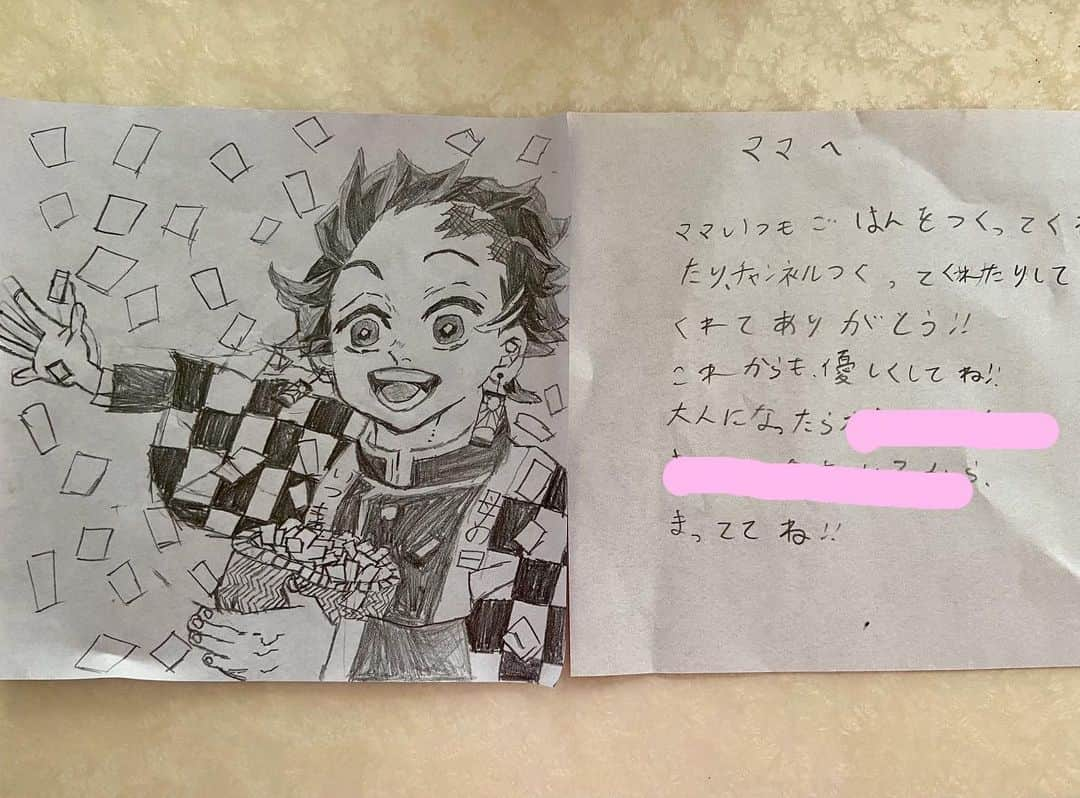 いつも
母の日
ママへ
ママいつもごはんをつくってく
たり、チャンネルつくってくれたりして
くれてありがとう!!
これからも、優しくしてね!!
大人になったら
ら、
まっててね!!